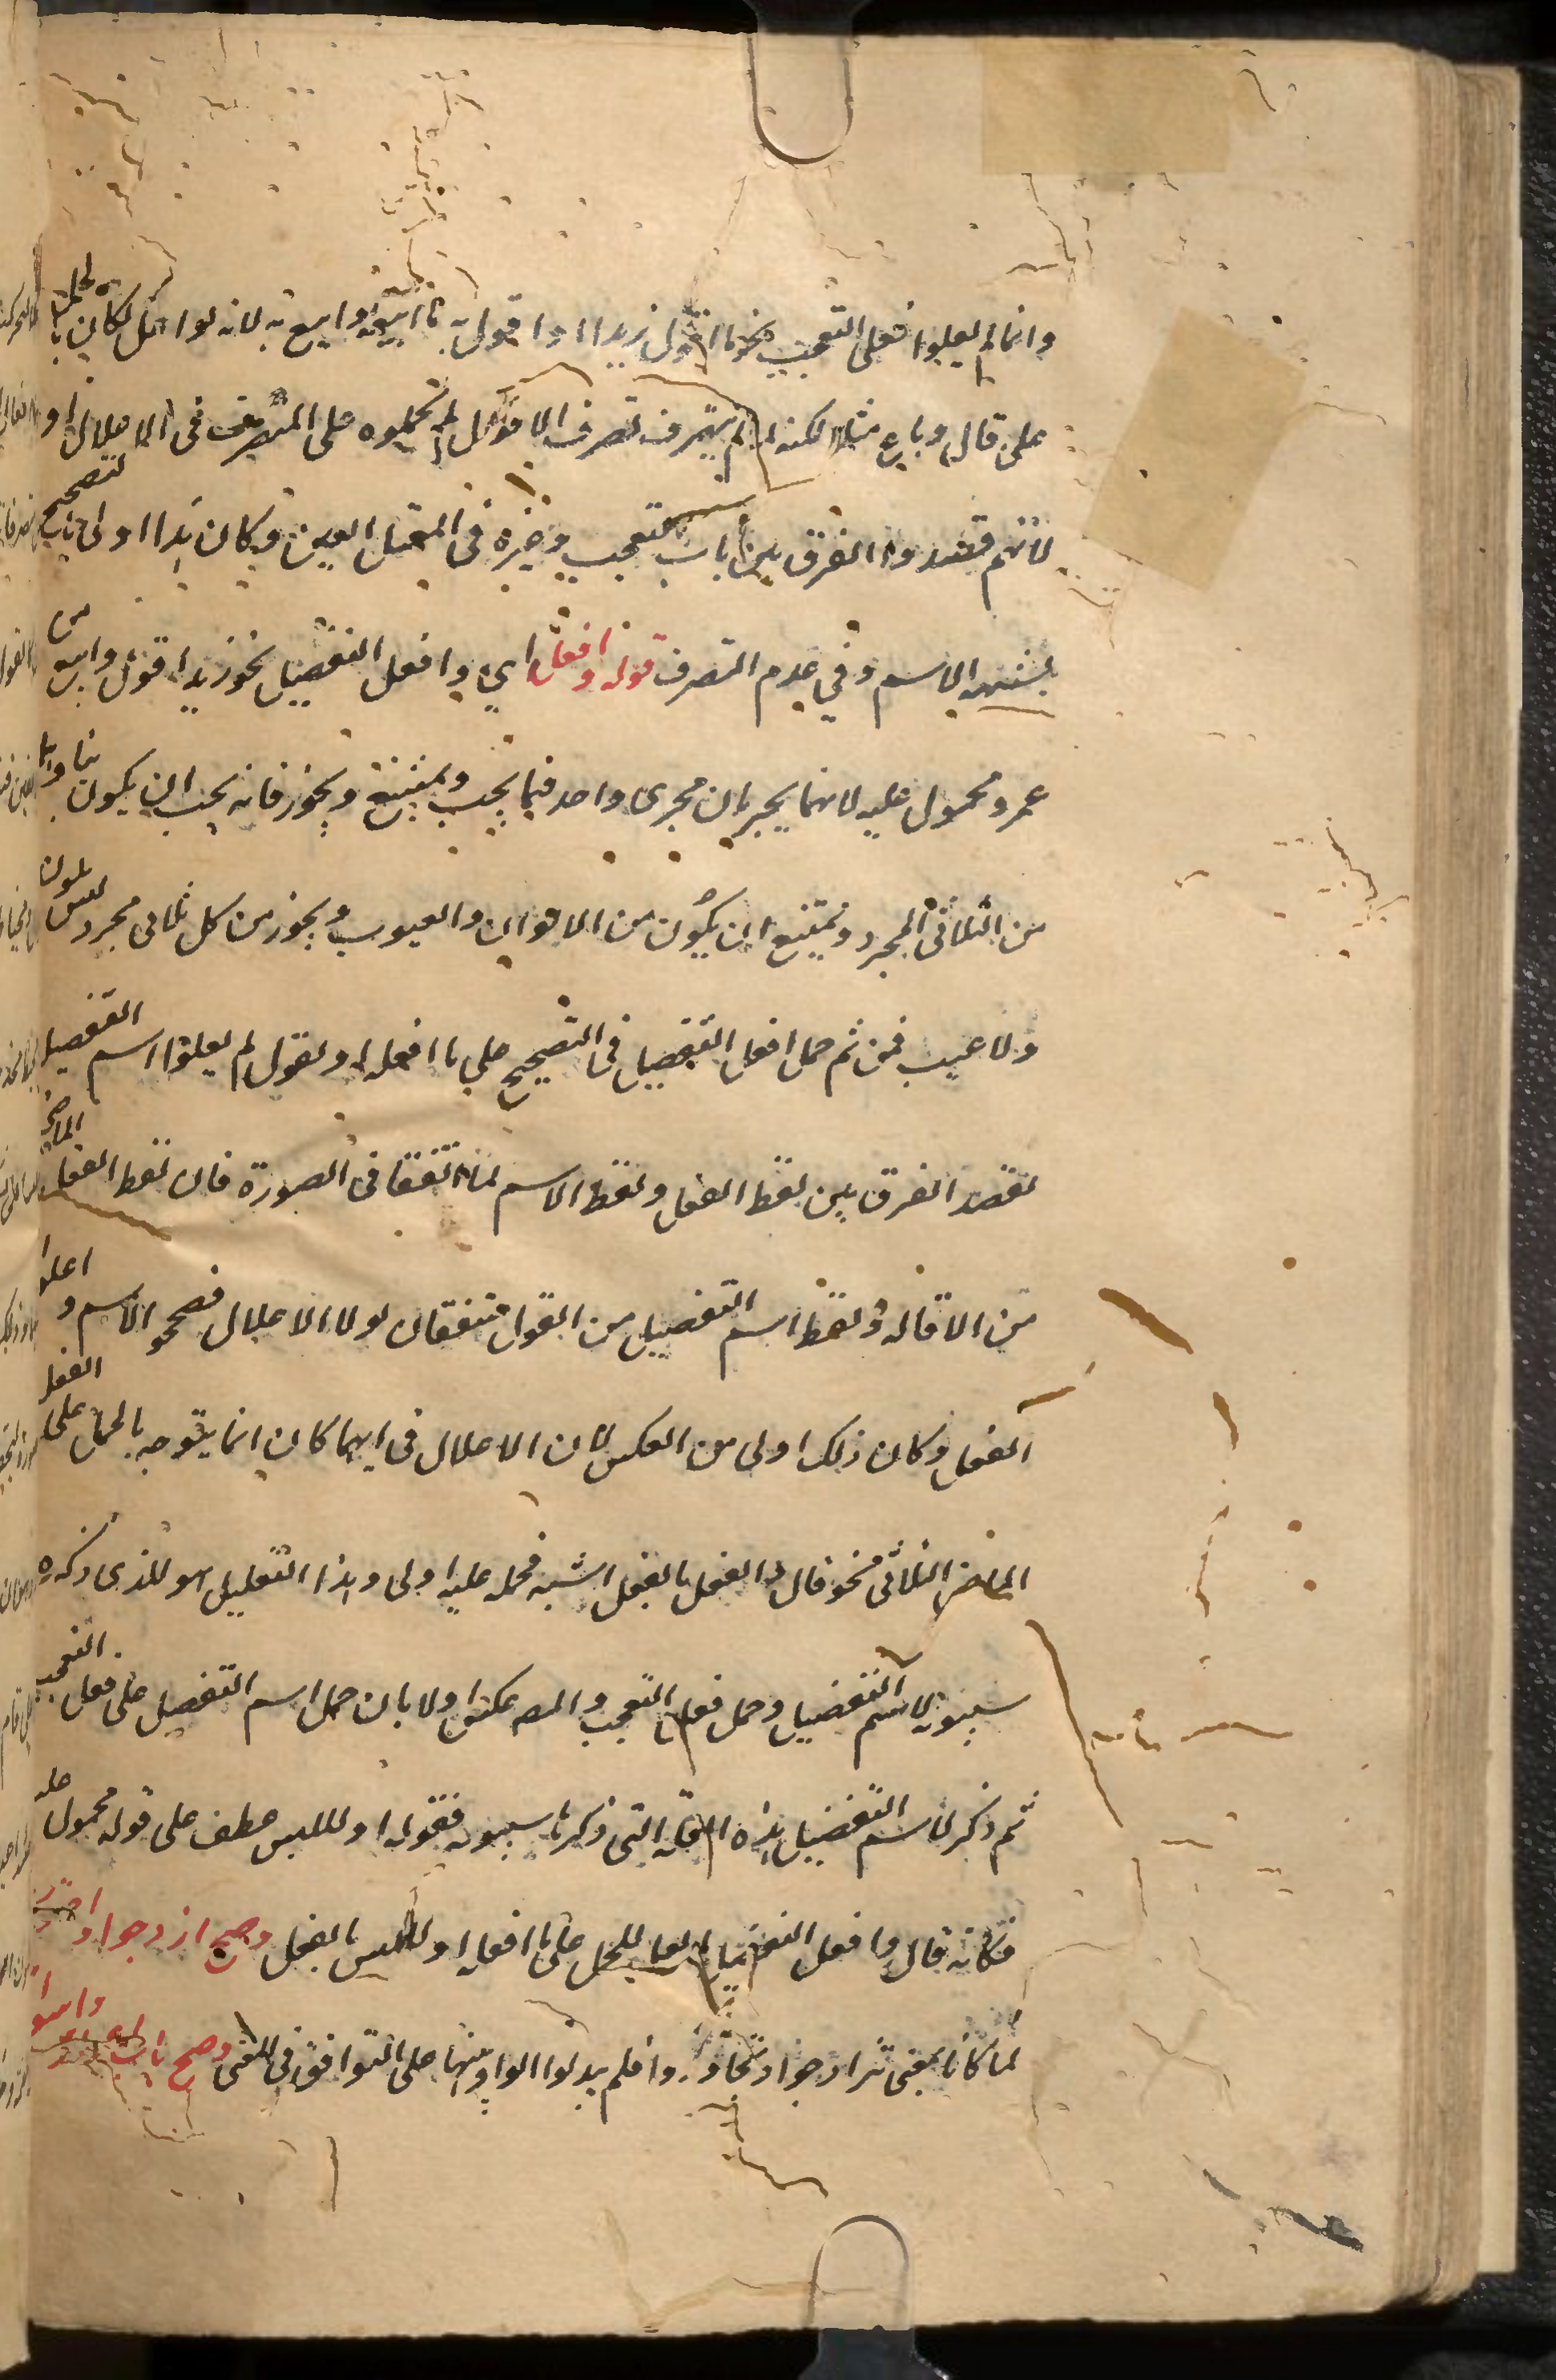 وانما لم يعلوا فعلى التعجب نحو ما اقول زيدا واقول به وما ابيعه وابيع به لانه لو اعل لكان بالحمل
على قال وباع مثلا لكنه لما لم يتصرف تصرف الافعال لم يحملوه على المتصرف فى الاعلال او
لانهم قصدوا الفرق بين باب التعجب وغيره فى المعتل العين وكان هذا اولى بالتصحيح
لشبهه الاسم وفي عدم التصرف قوله وافعل اي وافعل التفضيل نحو زيد اقول وابيع من
عمرو محمول عليه لانهما يجريان مجرى واحد فيما يجب ويمتنع ويجوز فانه يجب ان يكون بناوهما
من الثلاثى المجرد ويمتنع ان يكون من الالوان والعيوب ويجوز من كل ثلاثى مجرد ليس بلون
ولا عيب فمن ثم حمل افعل التفضيل فى التصحيح على ما افعله او نقول لم يعلوا اسم التفضيل
لقصد الفرق بين لفظ الفعل ولفظ الاسم لما اتفقا فى الصورة فان لفظ الفعل الماضى
من الاقالة ولفظ اسم التفضيل من القول متفقان لولا الاعلال فصححوا الاسم واعلوا
الفعل وكان ذلك اولى من العكس لان الاعلال فى ايهما كان انما يتوجه بالحمل على الفعل
الماضى الثلاثى نحو قال والفعل بالفعل اشبه فحمله عليه اولى وهذا التعليل هو للذى ذكره
سيبويه لاسم التفضيل وحمل فعل التعجب والمص عكس اولا بان حمل اسم التفضيل على فعل التعجب
ثم ذكر لاسم التفضيل هذه العلة التى ذكرها سيبويه فقوله او لللبس عطف على قوله محمول عليه
فكانه قال وافعل التفضيل لم يعل للحمل على ما افعله او لللبس بالفعل وصح ازدوجوا و
لما كانا بمعنى تزاوجوا وتجاوروا فلم يبدلوا الواو تنبيها على التوافق فى المعنى وصح باب